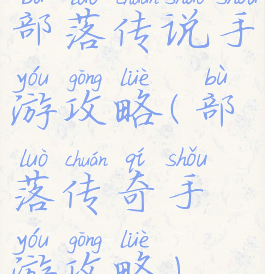 bù luò chuán shuō shǒu
部落传说手
yóu gōng lüè bù
游攻略(部
luò chuán qí shǒu
落传奇手
yóu gōng lüè
游攻略)